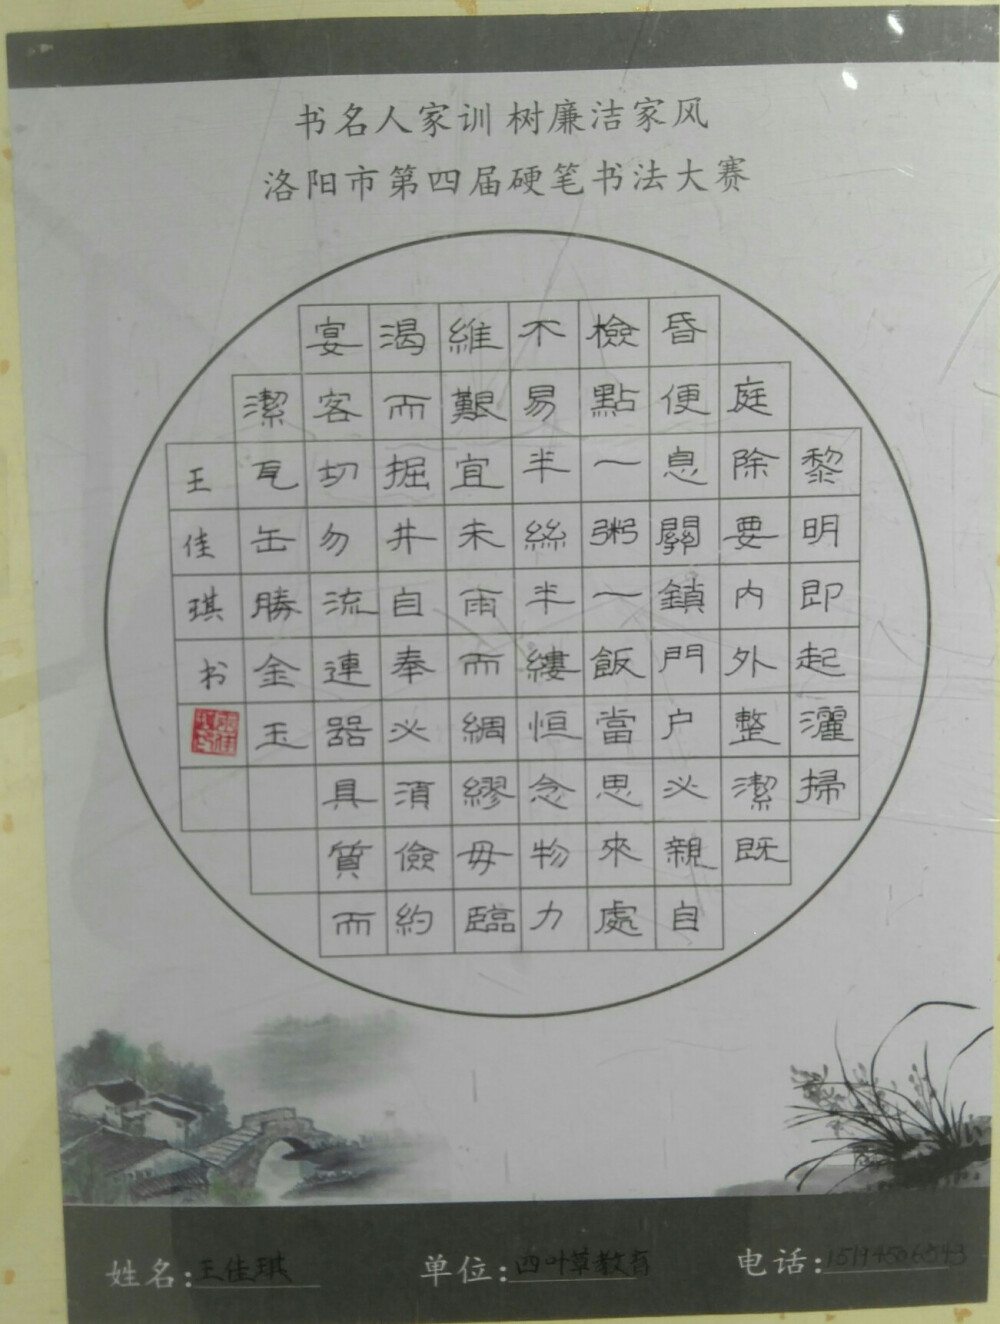 书名人家训 树廉洁家风
洛阳市第四届硬笔书法大赛
黎明即起灑掃
庭除要内外整潔既
昏便息關鎖門户必親自
檢點一粥一飯當思來處
不易半絲半縷恒念物力
維艱宜未雨而綢繆毋臨
渴而掘井自奉必須儉約
宴客切勿流連器具質而
潔瓦缶勝金玉
王佳琪书
姓名:王佳琪 单位:四叶草教育 电话: